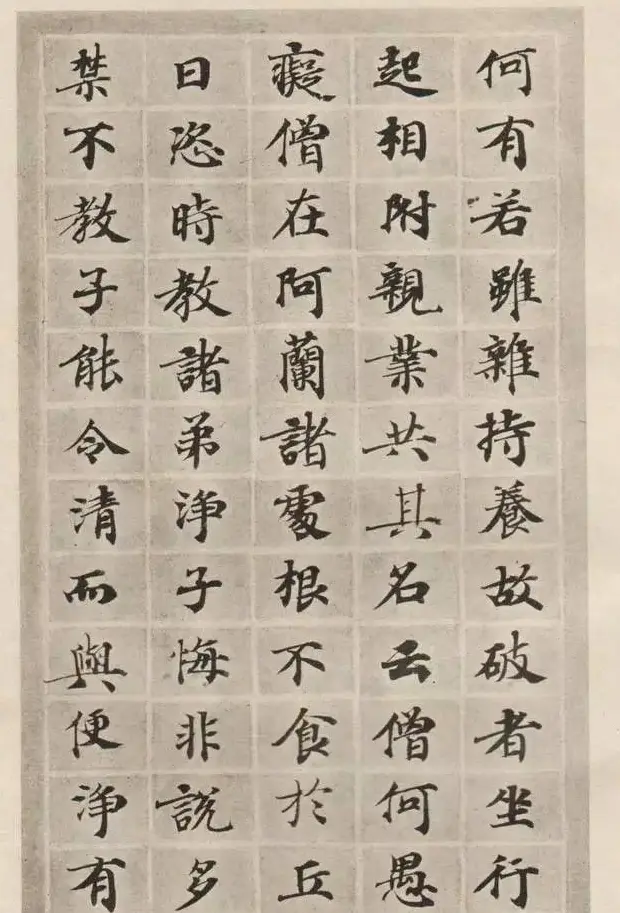 何有若雖雜持養故破者坐行
起相附親業共其名云僧何愚
癡僧在阿蘭諸處根不食於丘
日恣時教諸弟淨子悔非說多
禁不教子能令清而與便淨有